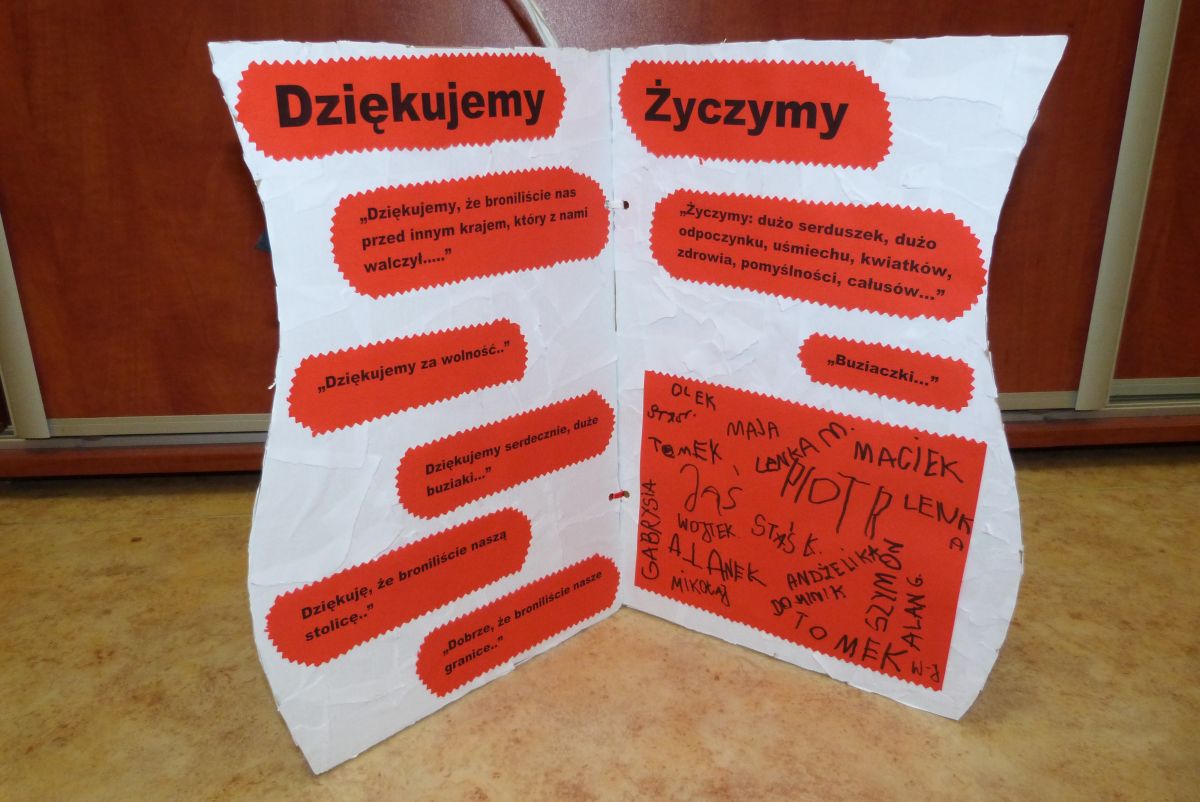 Dziękujemy
„Dziękujemy, że broniliście nas
przed innym krajem, który z nami
walczył.....”
„Dziękujemy za wolność..”
Dziękujemy serdecznie, duże
buziaki...”
Dziękuję, że broniliście naszą
stolicę..”
„Dobrze, że broniliście nasze
granice..”
Życzymy
„Życzymy: dużo serduszek, dużo
odpoczynku, uśmiechu, kwiatków,
zdrowia, pomyślności, całusów...”
„Buziaczki...”
OLEK
MAJA
TOMEK
LENKA M.
MACIEK
JAŚ
PIOTR
LENKA
GABRYSIA
WOJTEK
STAŚ K.
ALANEK
ANDŻELIKA
MIKOŁAJ
DOMINIK
SZYMON
ALAN G.
TOMEK